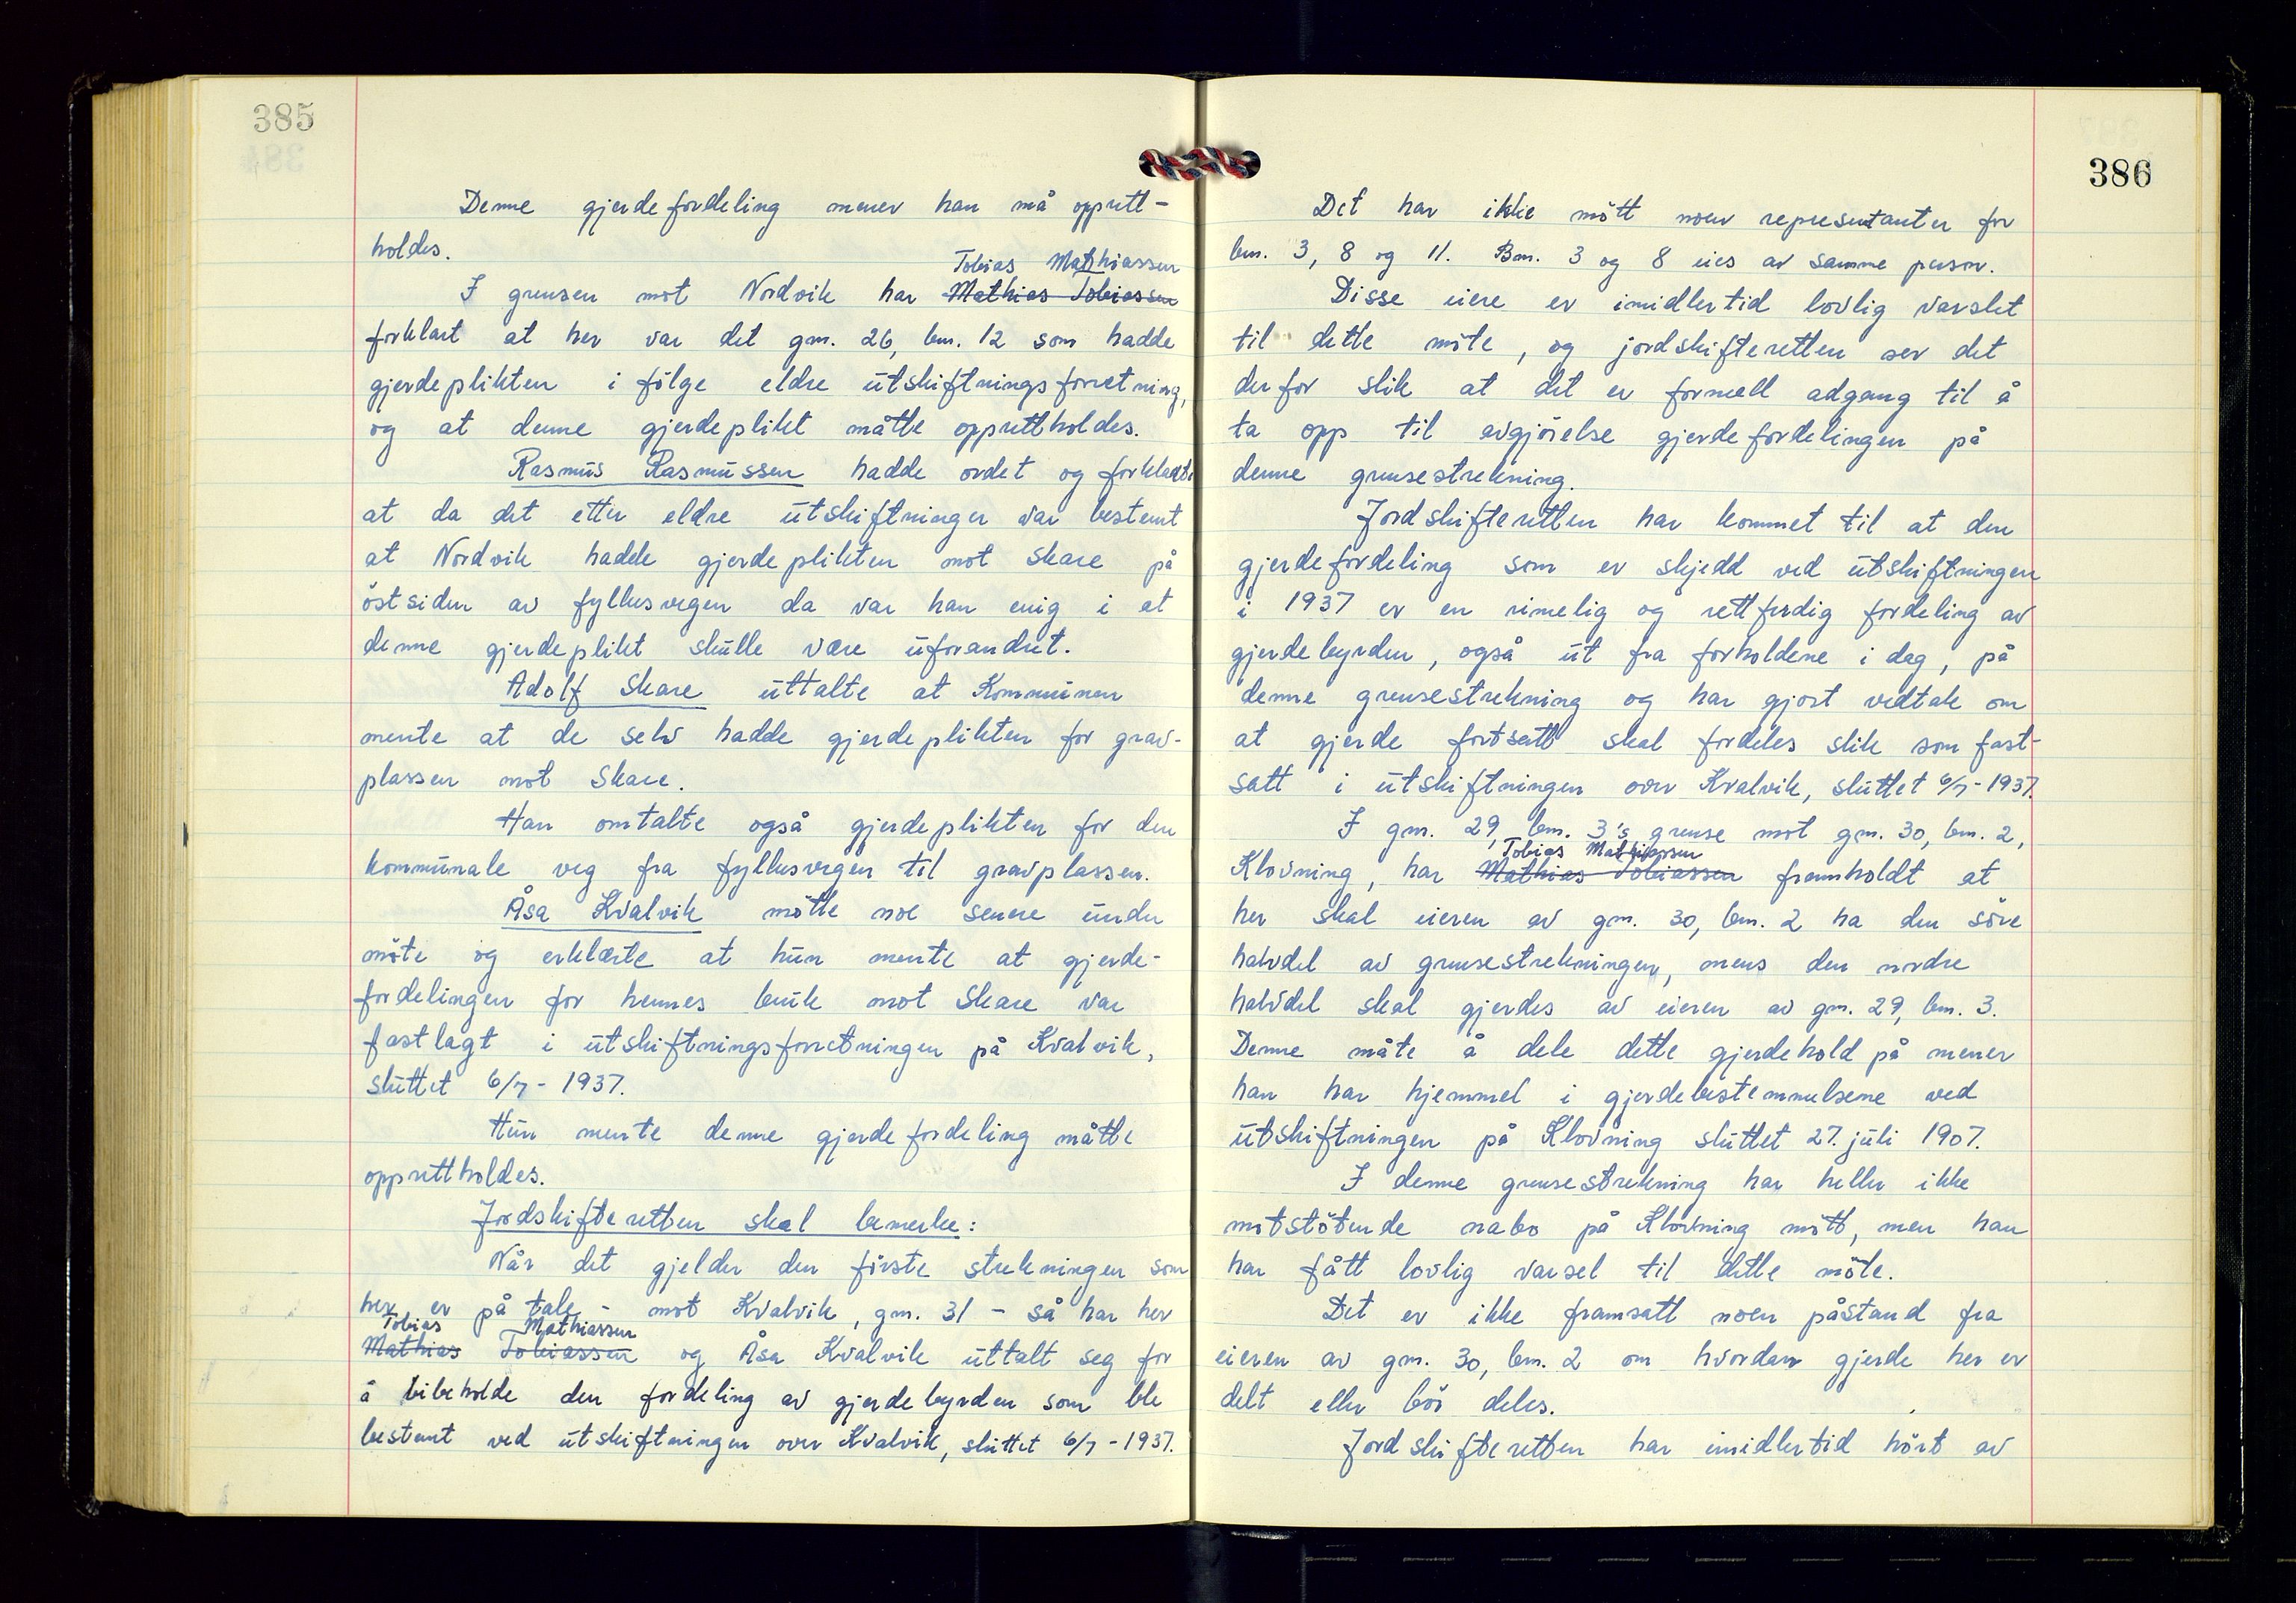 385
Denne gjerdefordeling mener han må opprett-
holdes.
Tobias Mathiassen
I grensen mot Nordvik har Mathias Tobiassen
forklart at her var det gnr. 26, bnr. 12 som hadde
gjerdeplikten i følge eldre utskiftningsforretning,
og at denne gjerdeplikt måtte opprettholdes.
Rasmus Rasmussen hadde ordet og forklarte
at da det etter eldre utskiftninger var bestemt
at Nordvik hadde gjerdeplikten mot Skare på
östsiden av fyllusvegen da var han enig i at
denne gjerdeplikt skulle være uforandret.
Adolf Skare uttalte at Kommunen
mente at de selv hadde gjerdeplikten for grav-
plassen mot Skare.
Han omtalte også gjerdeplikten for den
kommunale veg fra fyllusvegen til gravplassen.
Åsa Kvalvik mötte noe senere under
möte og erklærte at hun mente at gjerde-
fordelingen for hennes bruk mot Skare var
fastlagt i utskiftningsforretningen på Kvalvik,
sluttet 6/7 - 1937.
Hun mente denne gjerdefordeling måtte
opprettholdes.
Jordskifteretten skal bemerke:
Når det gjelder den förste strekningen som
her er på tale - mot Kvalvik, gnr. 31 - så har her
Tobias Mathiassen
Mathias Tobiassen og Åsa Kvalvik uttalt seg for
å bibeholde den fordeling av gjerdebyrden som ble
bestemt ved utskiftningen over Kvalvik, sluttet 6/7 - 1937.
386
Det har ikke mött noen representanter for
bnr. 3, 8 og 11. Bnr. 3 og 8 eies av samme person.
Disse eiere er imidlertid lovlig varslet
til dette möte, og jordskifteretten ser det
derfor slik at det er formell adgang til å
ta opp til avgjörelse gjerdefordelingen på
denne grensestrekning.
Jordskifteretten har kommet til at den
gjerdefordeling som er skjedd ved utskiftningen
i 1937 er en rimelig og rettferdig fordeling av
gjerdebyrden, også ut fra forholdene i dag, på
denne grensestrekning og har gjort vedtak om
at gjerde fortsatt skal fordeles slik som fast-
satt i utskiftningen over Kvalvik, sluttet 6/7 - 1937.
I gnr. 29, bnr. 3's grense mot gnr. 30, bnr. 2,
Tobias Mathiassen
Klovning, har Mathias Tobiassen framholdt at
her skal eieren av gnr. 30, bnr. 2 ha den söre
halvdel av grensestrekningen, mens den nordre
halvdel skal gjerdes av eieren av gnr. 29, bnr. 3.
Denne måte å dele dette gjerdehold på mener
han har hjemmel i gjerdebestemmelsene ved
utskiftningen på Klovning sluttet 27. juli 1907.
I denne grensestrekning har heller ikke
motstötende nabo på Klovning mött, men han
har fått lovlig varsel til dette möte.
Det er ikke framsatt noen påstand fra
eieren av gnr. 30, bnr. 2 om hvordan gjerde her er
delt eller bör deles.
Jordskifteretten har imidlertid hört av